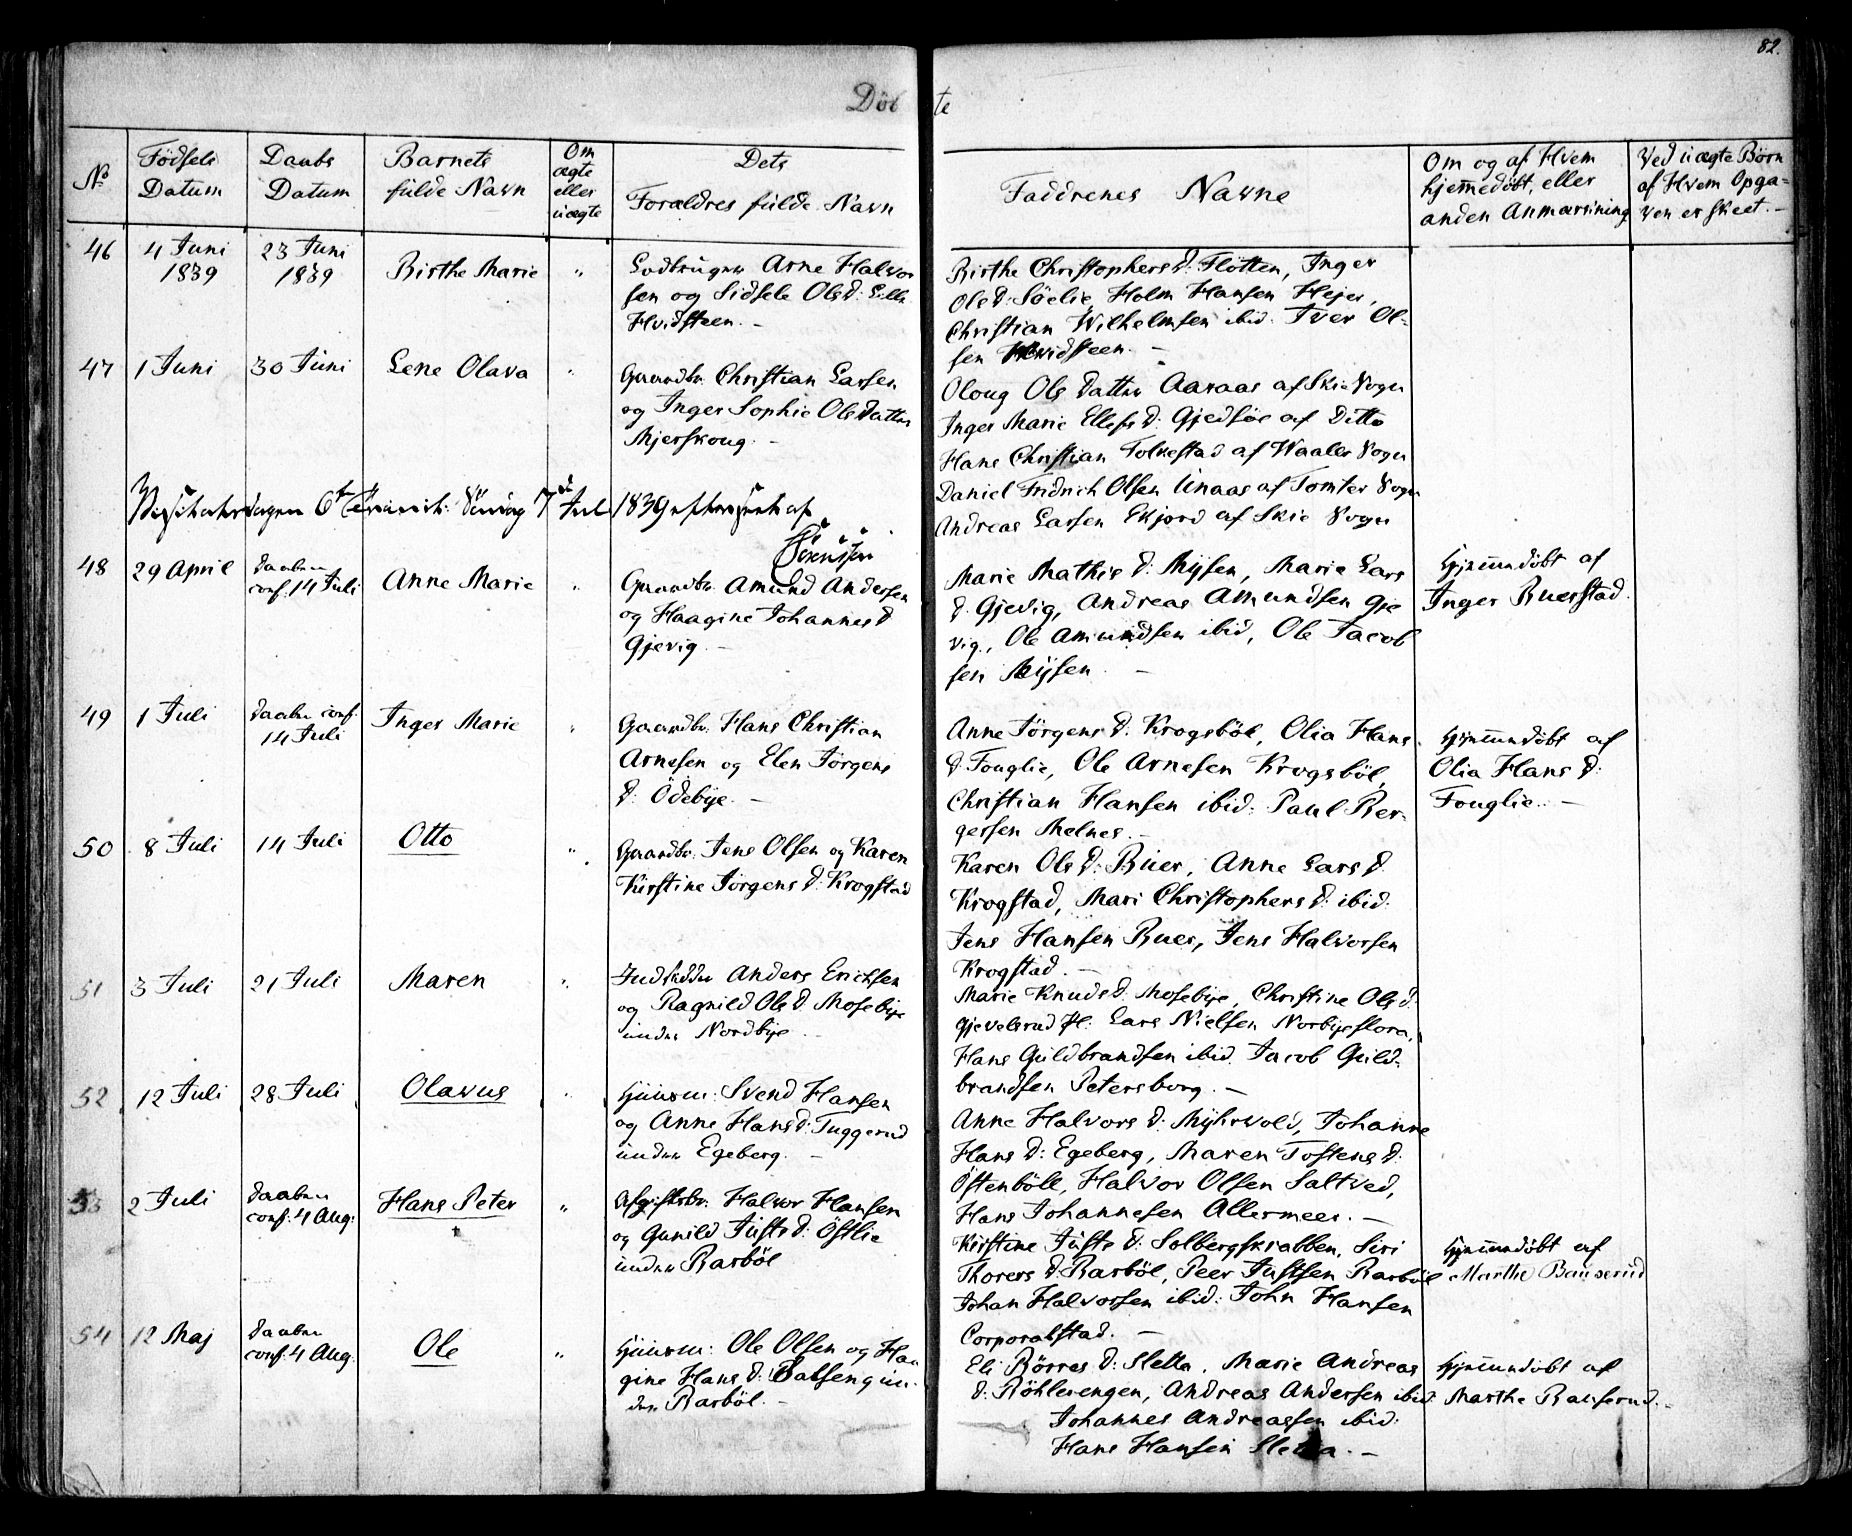 82.
Döbte
No
Födsels Datum
Daabs Datum
Barnets fulde Navn
Om ægte eller uægte
Dets Foræledres fulde Navn
Faddrenes Navne
Om og af Hvem hjemmedöbt, eller anden Anmærkning
Ved uægte Börn af Hvem Opgaven er skeet. -
46
4 Juni 1839
23 Juni 1839
Birthe Marie
"
Lodbruger Arne Halvor
sen og Sidsele Olsd: Lille
Hvidsteen. -
Birthe Christophersd: Flötten, Inger
Olsd: Söelie, Holm Hansen Hejer,
Christian Wilhelmsen ibid. Iver Ol-
sen Hvidsteen. -
47
1 Juni
30 Juni
Lene Olava
"
Gaardbr. Christian Larsen
og Inger Sophie Olsdatter
Mjerskoug. -
Oloug Olsdatter Aaraas af Skie Sogn
Inger Marie Ellefsd: Gjedsöe af Ditto
Hans Christian Folkestad af Waaler Sogn
Daniel Fridrich Olsen Unaas af Tomter Sogn
Andreas Larsen Ekjord af Skie Sogn
6te Söndag 7de Juli 1839 efterseet af
Sörenssen
48
29 April
daaben conf. 14 Juli
Anne Marie
"
Gaardbr. Amund Andersen
og Haagine Johannesd
Gjevig. -
Marie Mathisd: Mysen, Marie Lars
d. Gjevig, Andreas Amundsen Gje
vig., Ole Amundsen ibid, Ole Jacob
sen Mysen. -
Hjemmedöbt af
Inger Buerstad.
49
1 Juli
daaben conf. 14 Juli
Inger Marie
"
Gaardbr. Hans Christian
Arnesen og Elen Jörgens
d: Ödebye. -
Anne Jörgensd: Krogsböl, Olia Hans
d. Fouglie, Ole Arnesen Krogsböl,
Christian Hansen ibid: Paul Ber-
gersen Melnes. -
Hjemmedöbt af
Olia Hansd:
Fouglie. -
50
8 Juli
14 Juli
Otto
"
Gaardbr. Jens Olsen og Karen
Kirstine Jörgensd: Krogstad
Karen Olsd: Buer, Anne Larsd
Krogstad, Mari Christophersd: ibid.
Jens Hansen Buer, Jens Halvorsen
Krogstad. -
51
3 Juli
21 Juli
Maren
"
Indsidder Anders Erichsen
og Ragnild Olsd. Mosebye
under Nordbye
Marie Knudsd: Mosebye, Christine Olsd
Gjevelsrud Lars Nielsen Norbyeflora,
Hans Guldbrandsen ibid. Jacob Guld-
brandsen Petersborg. -
52
12 Juli
28 Juli
Olavus
"
Huusm: Svend Hansen
og Anne Hansd: Tuggerud
under Egeberg. -
Anne Halvorsd: Myhrvold, Johanne
Hansd: Egeberg, Maren Tostensd.
Östenböll, Halvor Olsen Saltved,
Hans Johannesen Allermeer. -
53
2 Juli
daaben conf. 4 Aug:
Hans Peter
"
Afgiftsbr. Halvor Hansen
og Gunild Justsd: Östlie
under Rasböl
Kirstine Justsd: Solbergskrabben, Siri
Thoresd. Rasböl, Peer Justsen Rasböl
Johan Halvorsen ibid: John Hansen
Corporalstad. -
Hjemmedöbt af
Marthe Bauserud
54
12 Maj
daaben conf. 4 Aug.
Ole
"
Huusm: Ole Olsen og Haa
gine Hansd: un-
der Rasböl. -
Eli Börresd: Sletta, Marie Andreas
d. Röhlerengen, Andreas Andersen ibid
Johannes Andreassen ibid.
Hans Hansen Sletta. -
Hjemmedöbt af
Marthe Bauserud. -